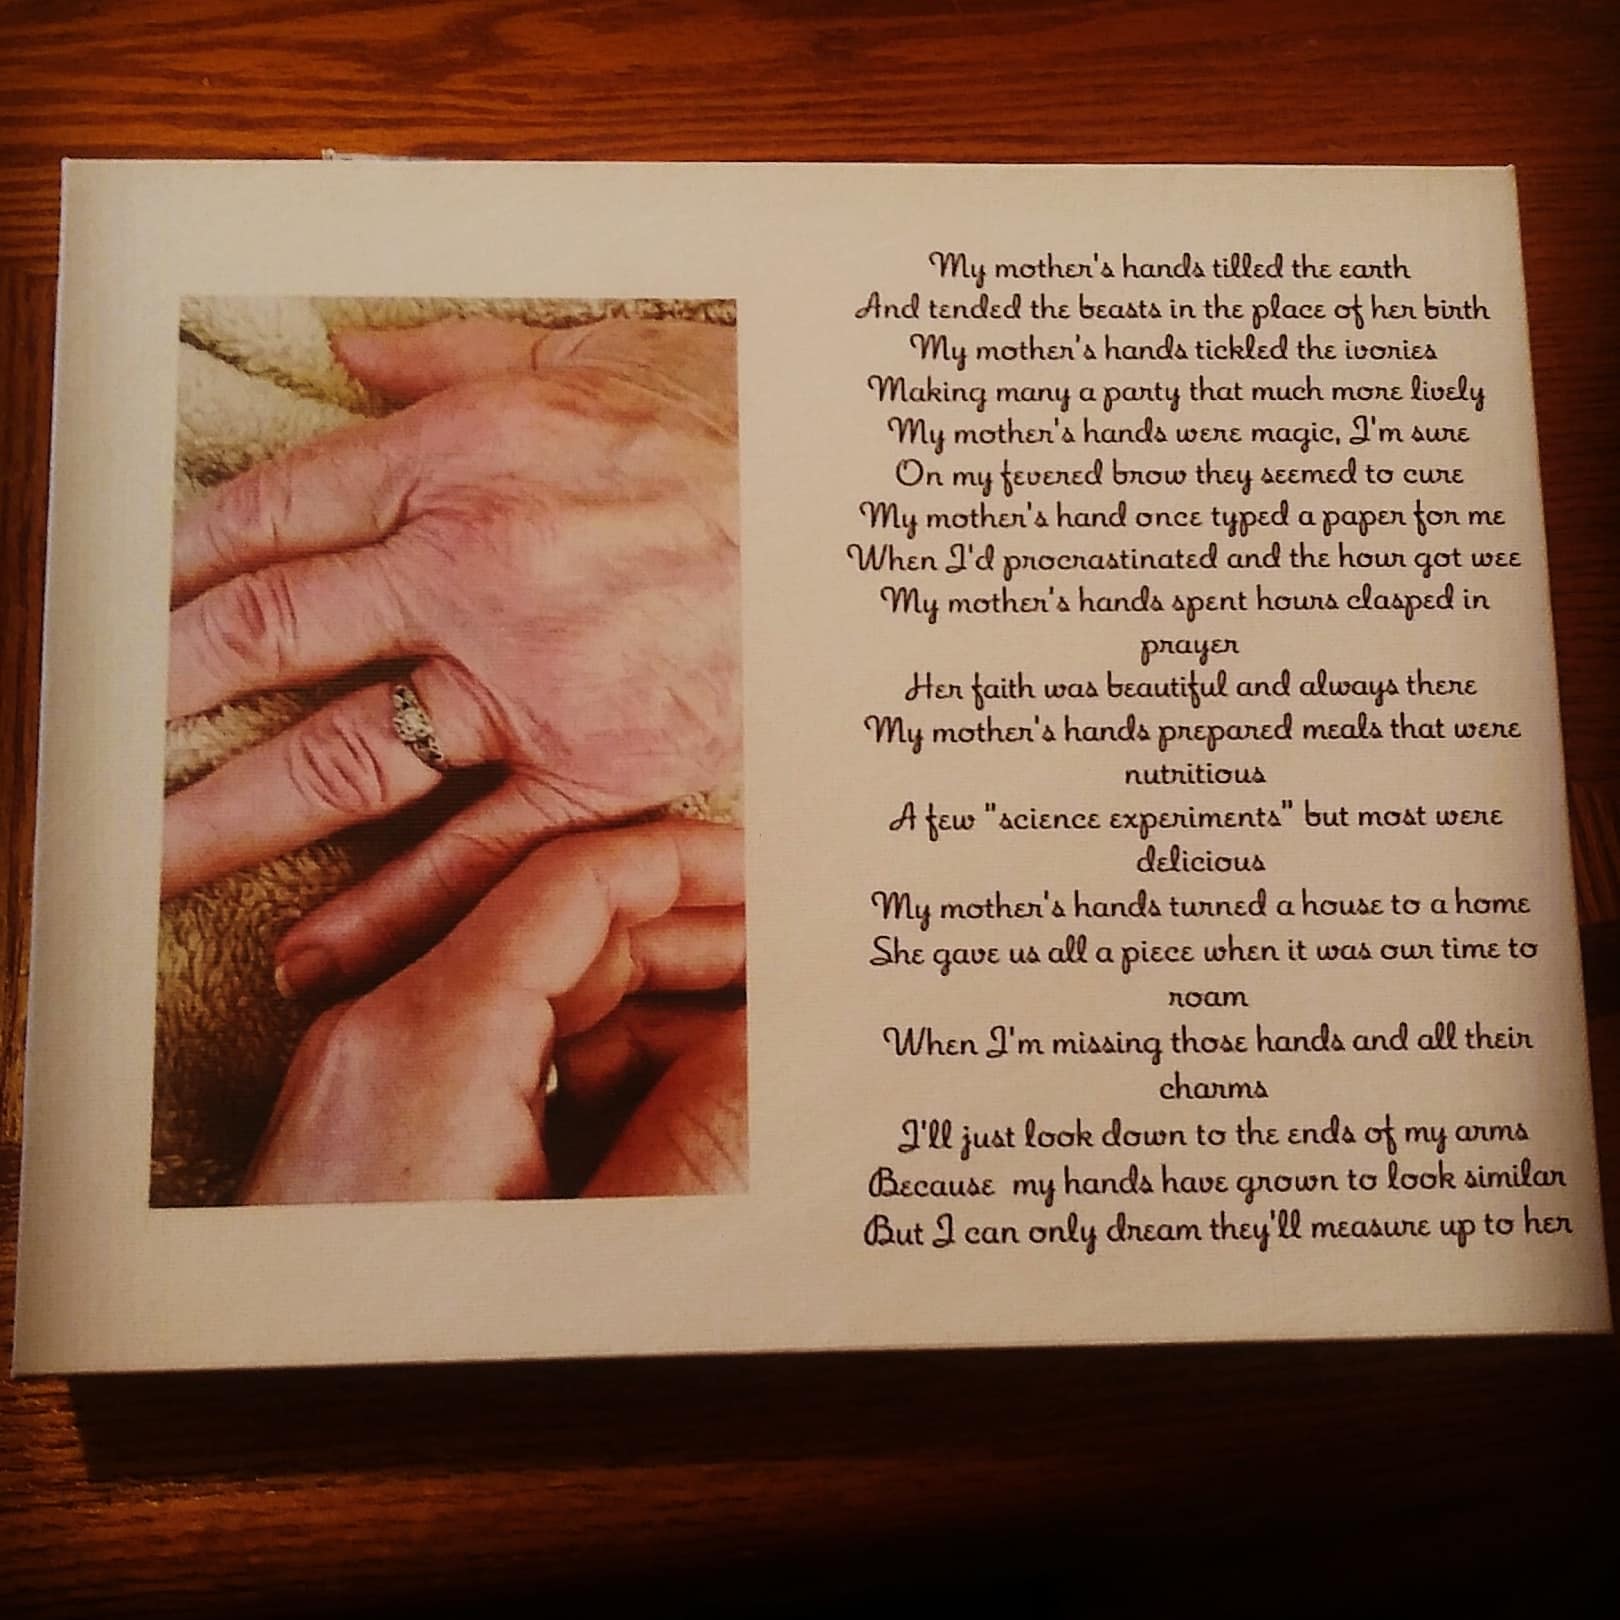 My mother's hands tilled the earth
And tended the beasts in the place of her birth
My mother's hands tickled the ivories
Making many a party that much more lively
My mother's hands were magic, I'm sure
On my fevered brow they seemed to cure
My mother's hand once typed a paper for me
When I'd procrastinated and the hour got wee
My mother's hands spent hours clasped in
prayer
Her faith was beautiful and always there
My mother's hands prepared meals that were
nutritious
A few "science experiments" but most were
delicious
My mother's hands turned a house to a home
She gave us all a piece when it was our time to
roam
When I'm missing those hands and all their
charms
I'll just look down to the ends of my arms
Because my hands have grown to look similar
But I can only dream they'll measure up to her